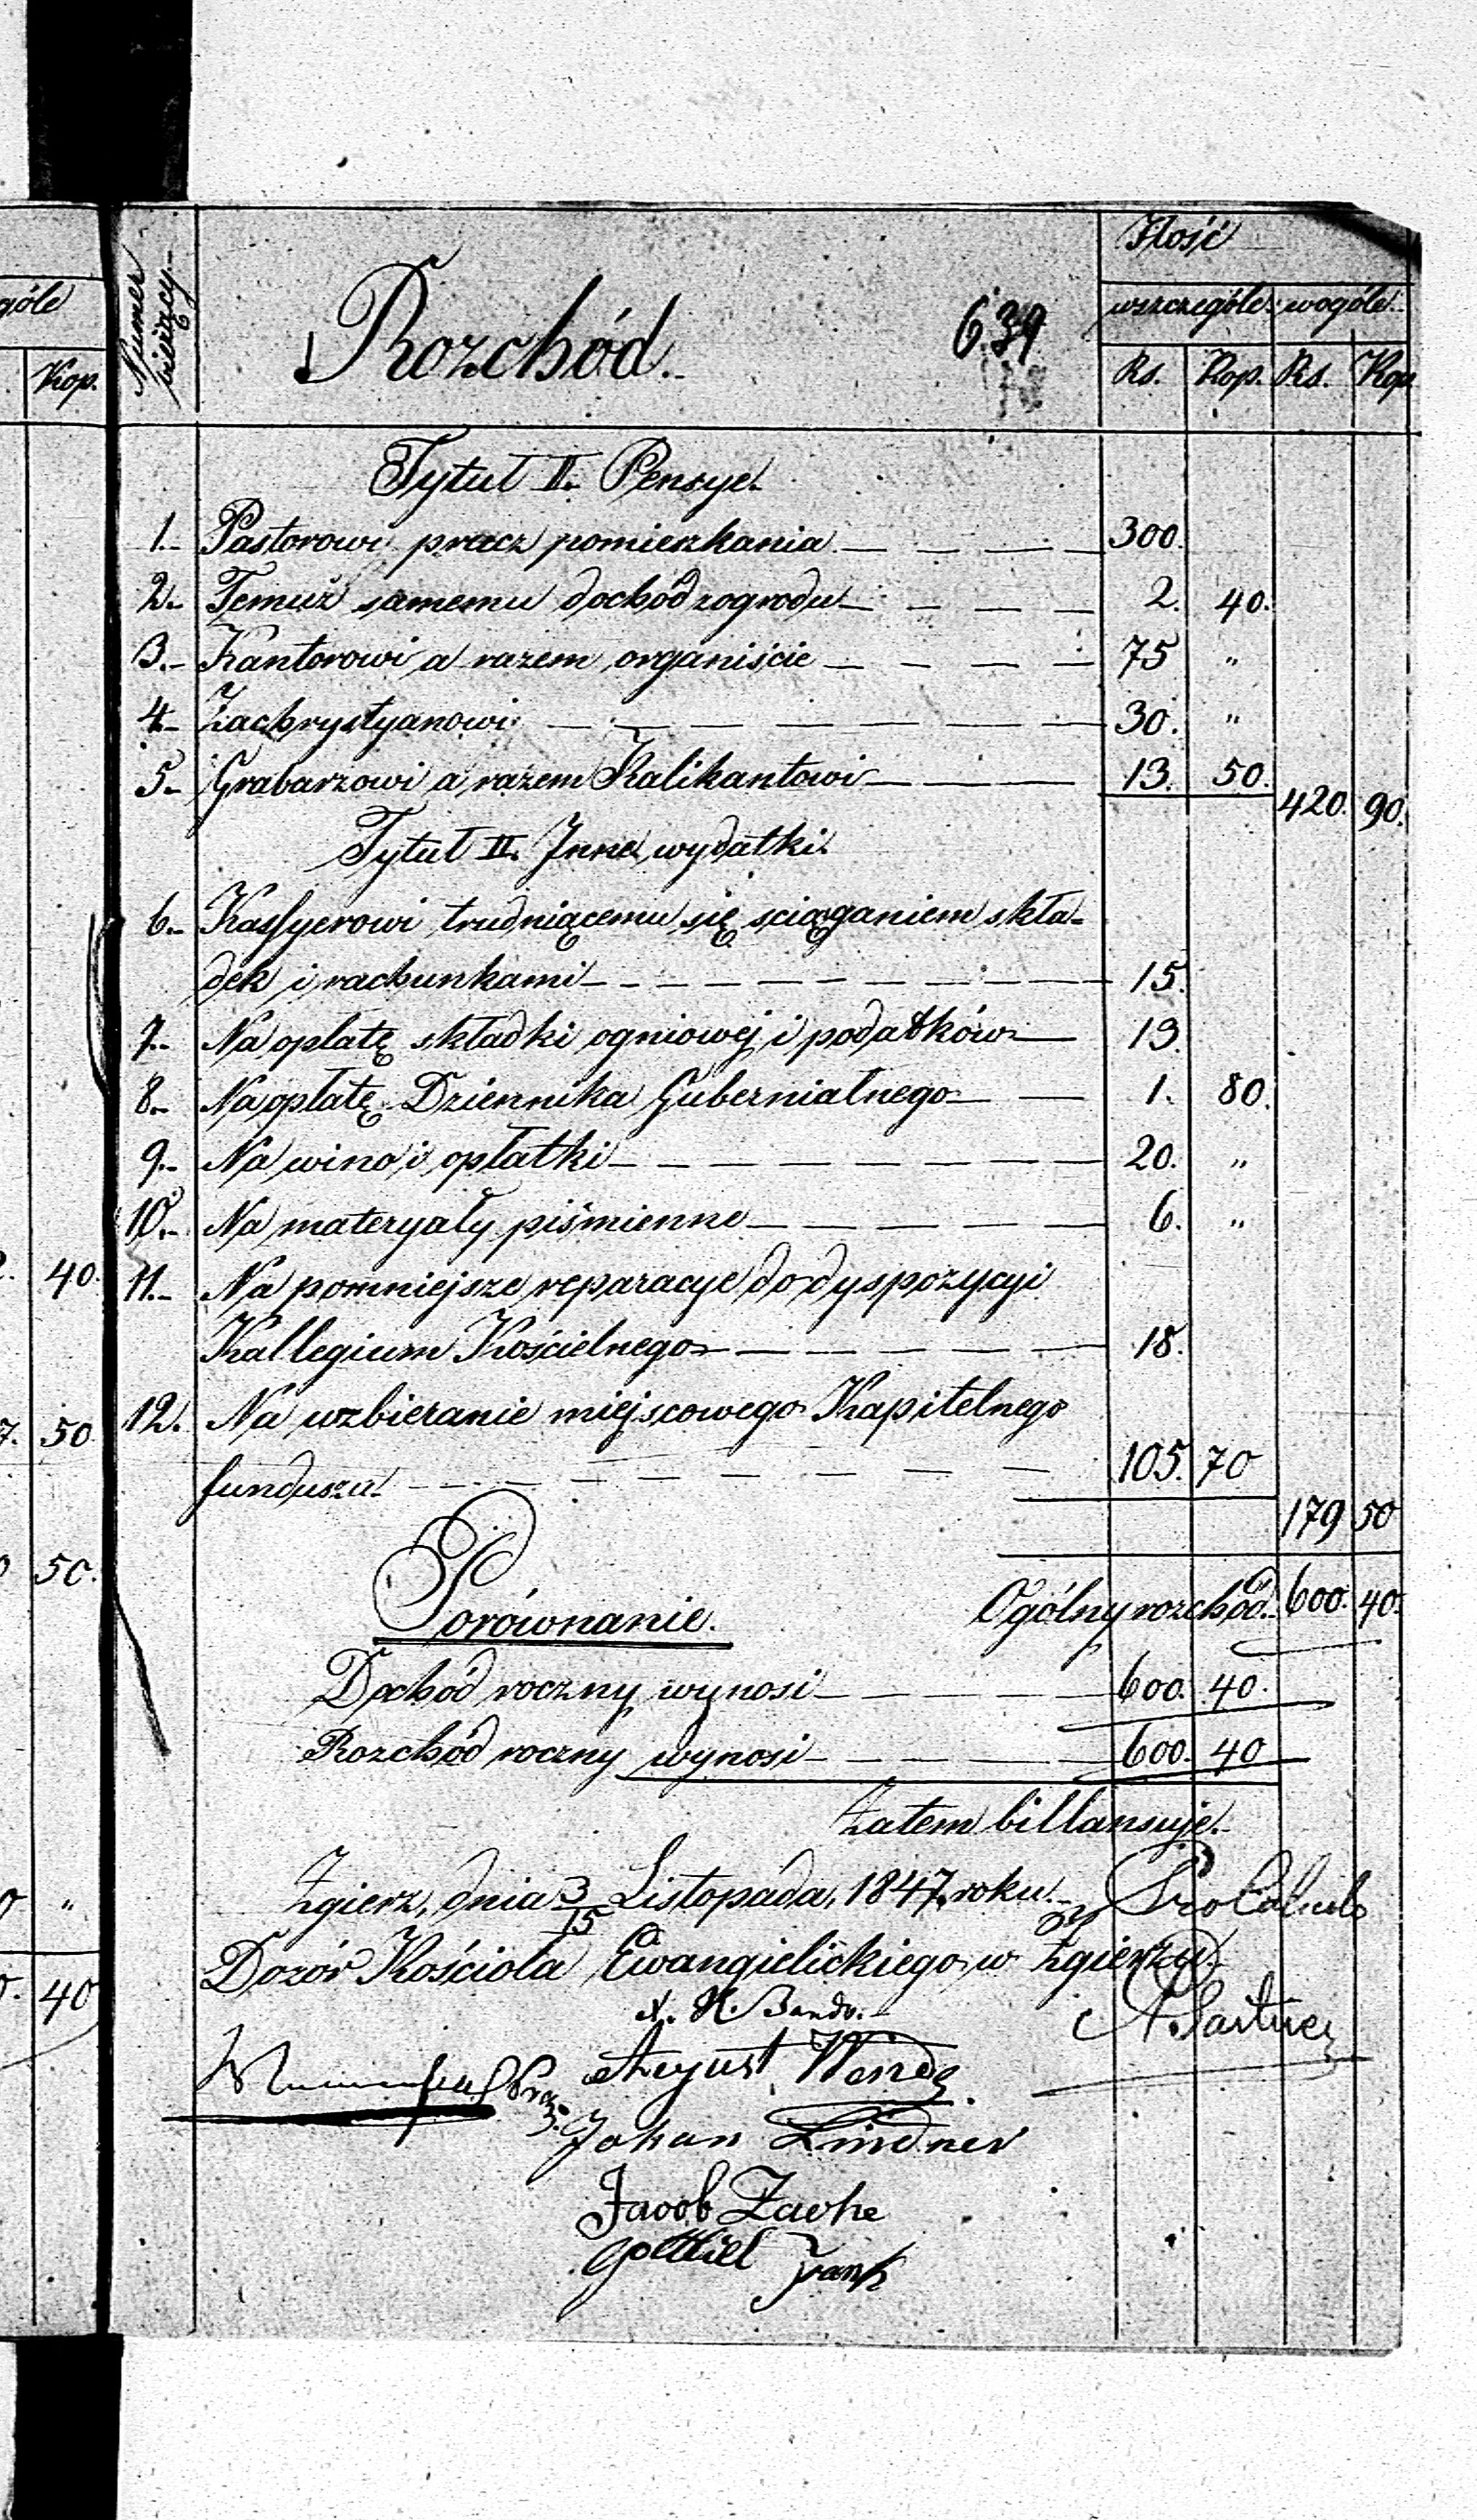 góle
Kop.
40.
7. 50
50.
0 "
0. 40
Numer bieżący.
Rozchód.
639
Ilość
wszczególe. wogóle.
Rs. Kop. Rs. Kop.
Tytuł II. Pensye.
1. Pastorowi prócz pomieszkania 300.
2. Temuż samemu dochód z ogrodu 2. 40.
3. Kantorowi a razem organiście 75 "
4. Zachrystyanowi 30. "
5. Grabarzowi a razem Kalikantowi 13. 50.
420. 90.
Tytuł II. Inne wydatki.
6. Kassyerowi trudniącemu się sciąganiem skła-
dek i rachunkami 15.
7. Na opłatę składki ogniowej i podatków 13.
8. Na opłatę Dziennika Gubernialnego 1. 80.
9. Na wino i opłatki 20. "
10. Na materyały piśmienne 6. "
11. Na pomniejsze reparacye do dyspozycyi
Kallegium Kościelnego 18.
12. Na uzbieranie miejscowego Kapitelnego
funduszu 105. 70
179 50
Ogólny rozchód. 600. 40.
Porównanie.
Dochód roczny wynosi 600. 40.
Rozchód roczny wynosi 600. 40
Zatem billansuje.
Zgierz, dnia 3/15 Listopada, 1847. roku.
Dozór Kościoła Ewangielickiego w Zgierzu.
August Wende
Johan Lindner
Jacob Zacke
Gottlieb Jank